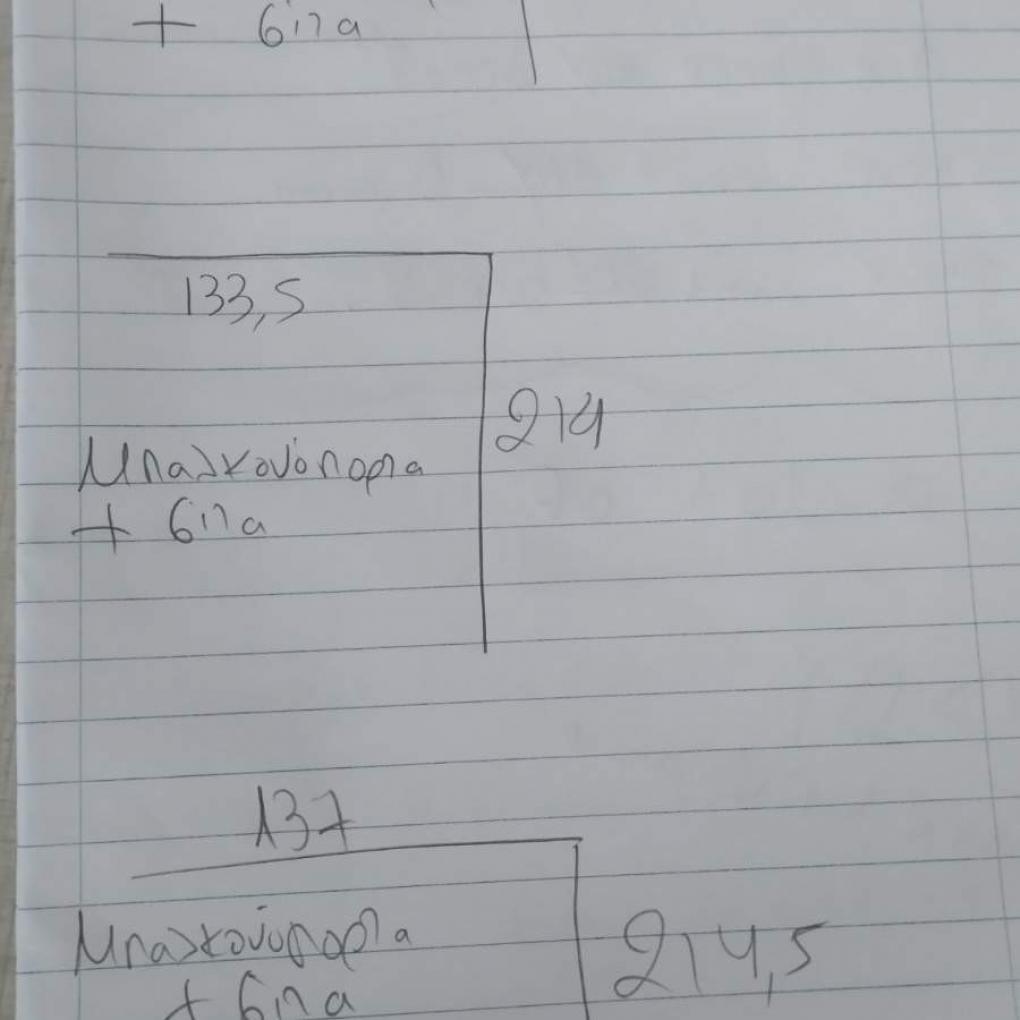 + σιτα
133,5
214
Μπαλκονόπορτα
+ σιτα
137
Μπαλκονόπορτα
214,5
+ σιτα